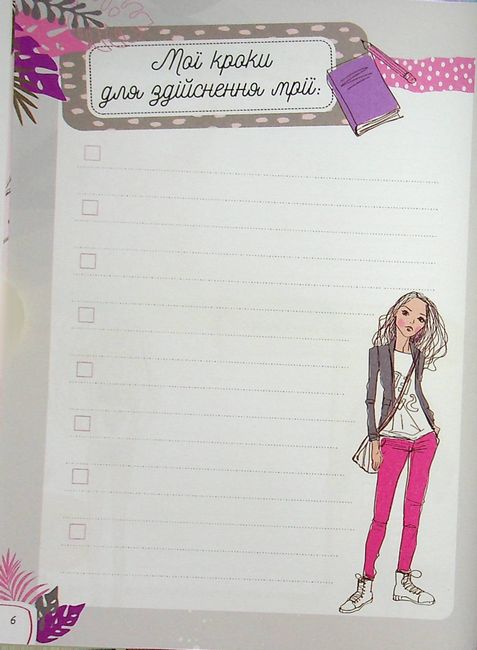 Мої кроки
для здійснення мрії:
6